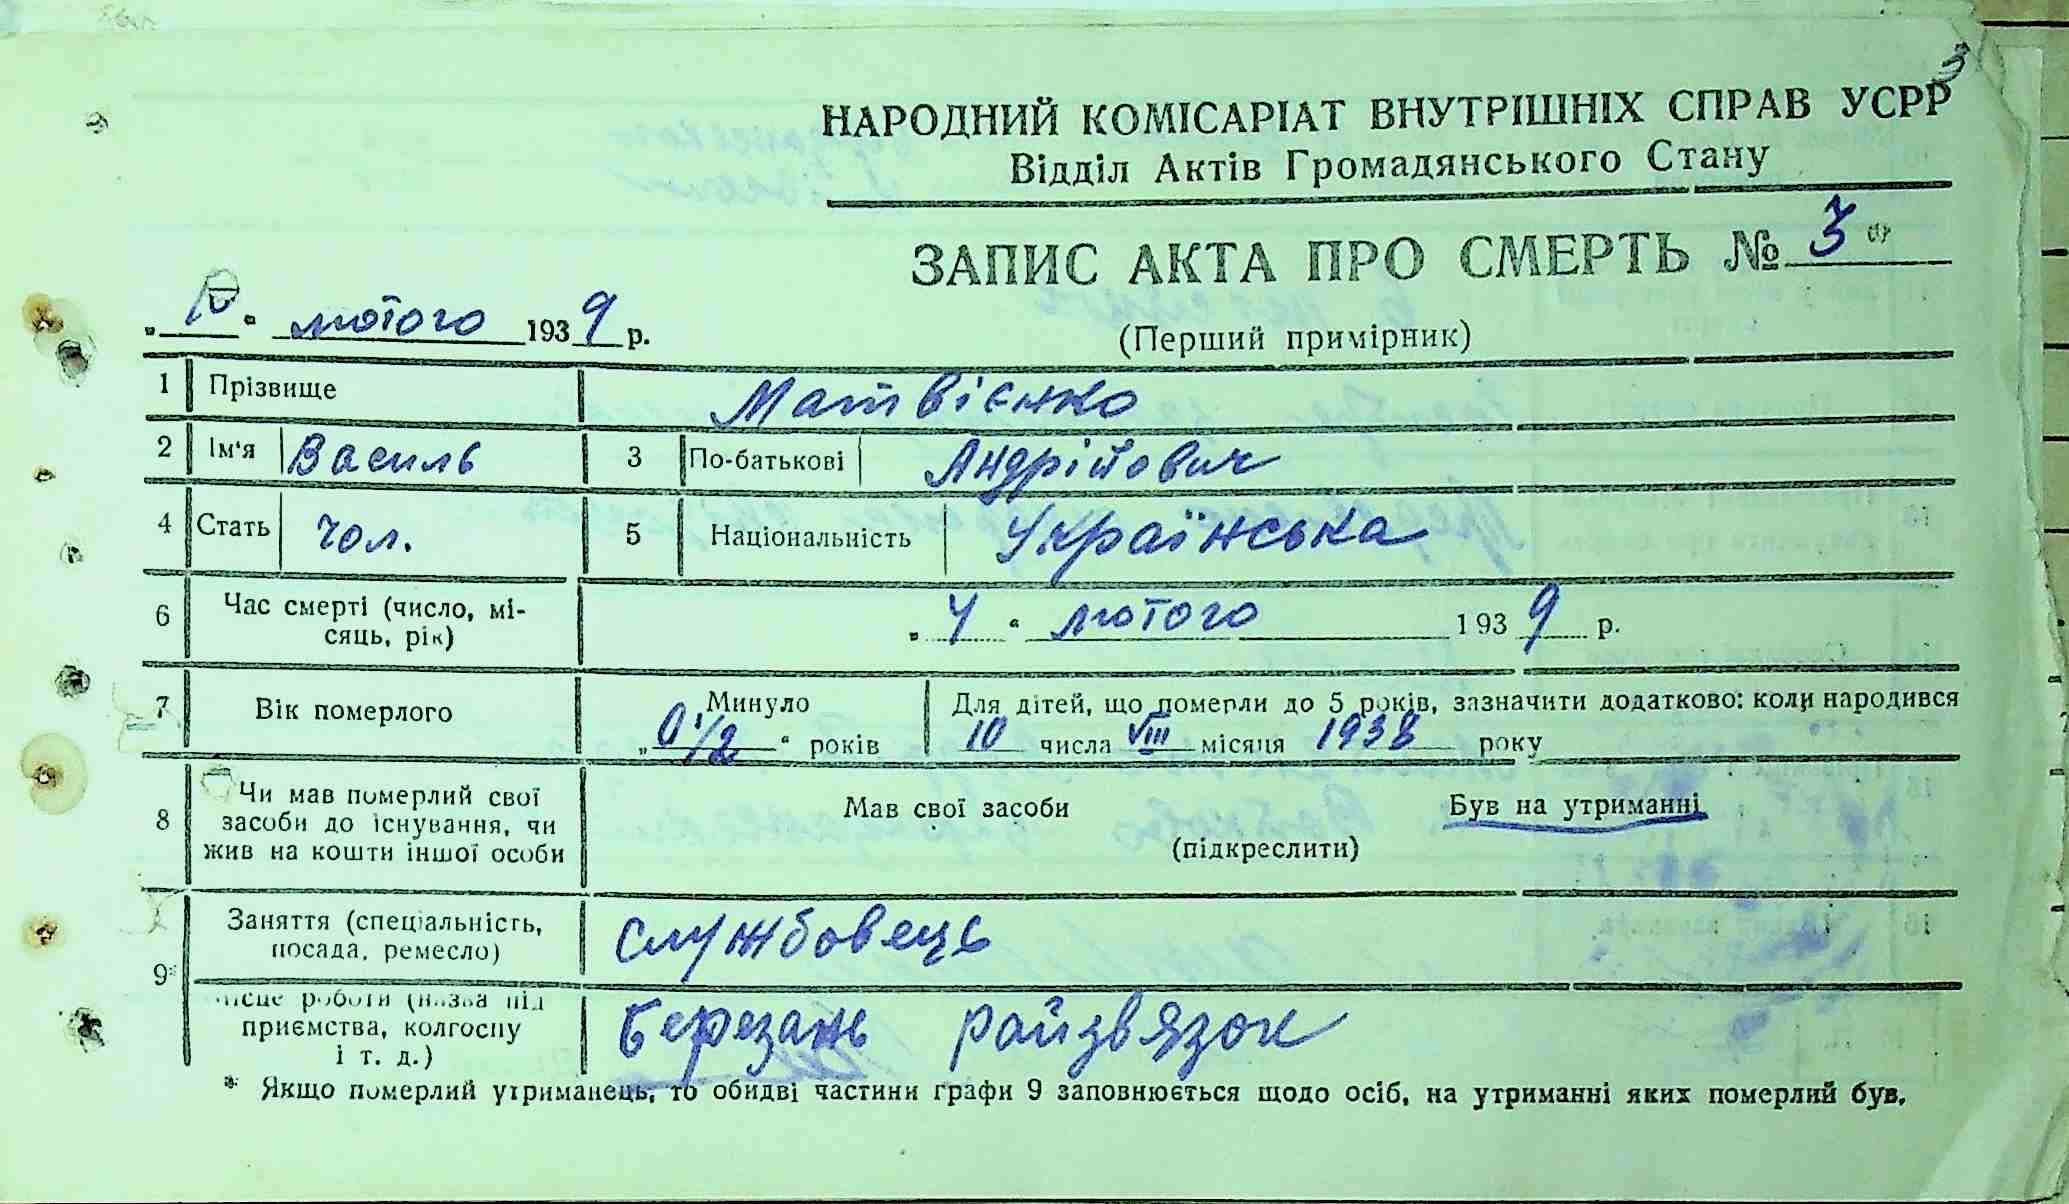 3
НАРОДНИЙ КОМІСАРІАТ ВНУТРІШНІХ СПРАВ УСРР
Відділ Актів Громадянського Стану
ЗАПИС АКТА ПРО СМЕРТЬ № 3
„10“ лютого 1939 р.
(Перший примірник)
1 Прізвище Матвієнко
2 Ім'я Василь 3 По-батькові Андрійович
4 Стать чол. 5 Національність Українська
6 Час смерті (число, мі-
сяць, рік) „4“ лютого 1939 р.
7 Вік померлого Минуло „0 1/2“ років Для дітей, що померли до 5 років, зазначити додатково: коли народився
10 числа VIII місяця 1938 року
8 Чи мав померлий свої
засоби до існування, чи
жив на кошти іншої особи
Мав свої засоби Був на утриманні
(підкреслити)
9* Заняття (спеціальність,
посада, ремесло) службовець
місце роботи (назва під
приємства, колгоспу
і т. д.) Березань райзвязок
* Якщо померлий утриманець, то обидві частини графи 9 заповнюється щодо осіб, на утриманні яких померлий був.